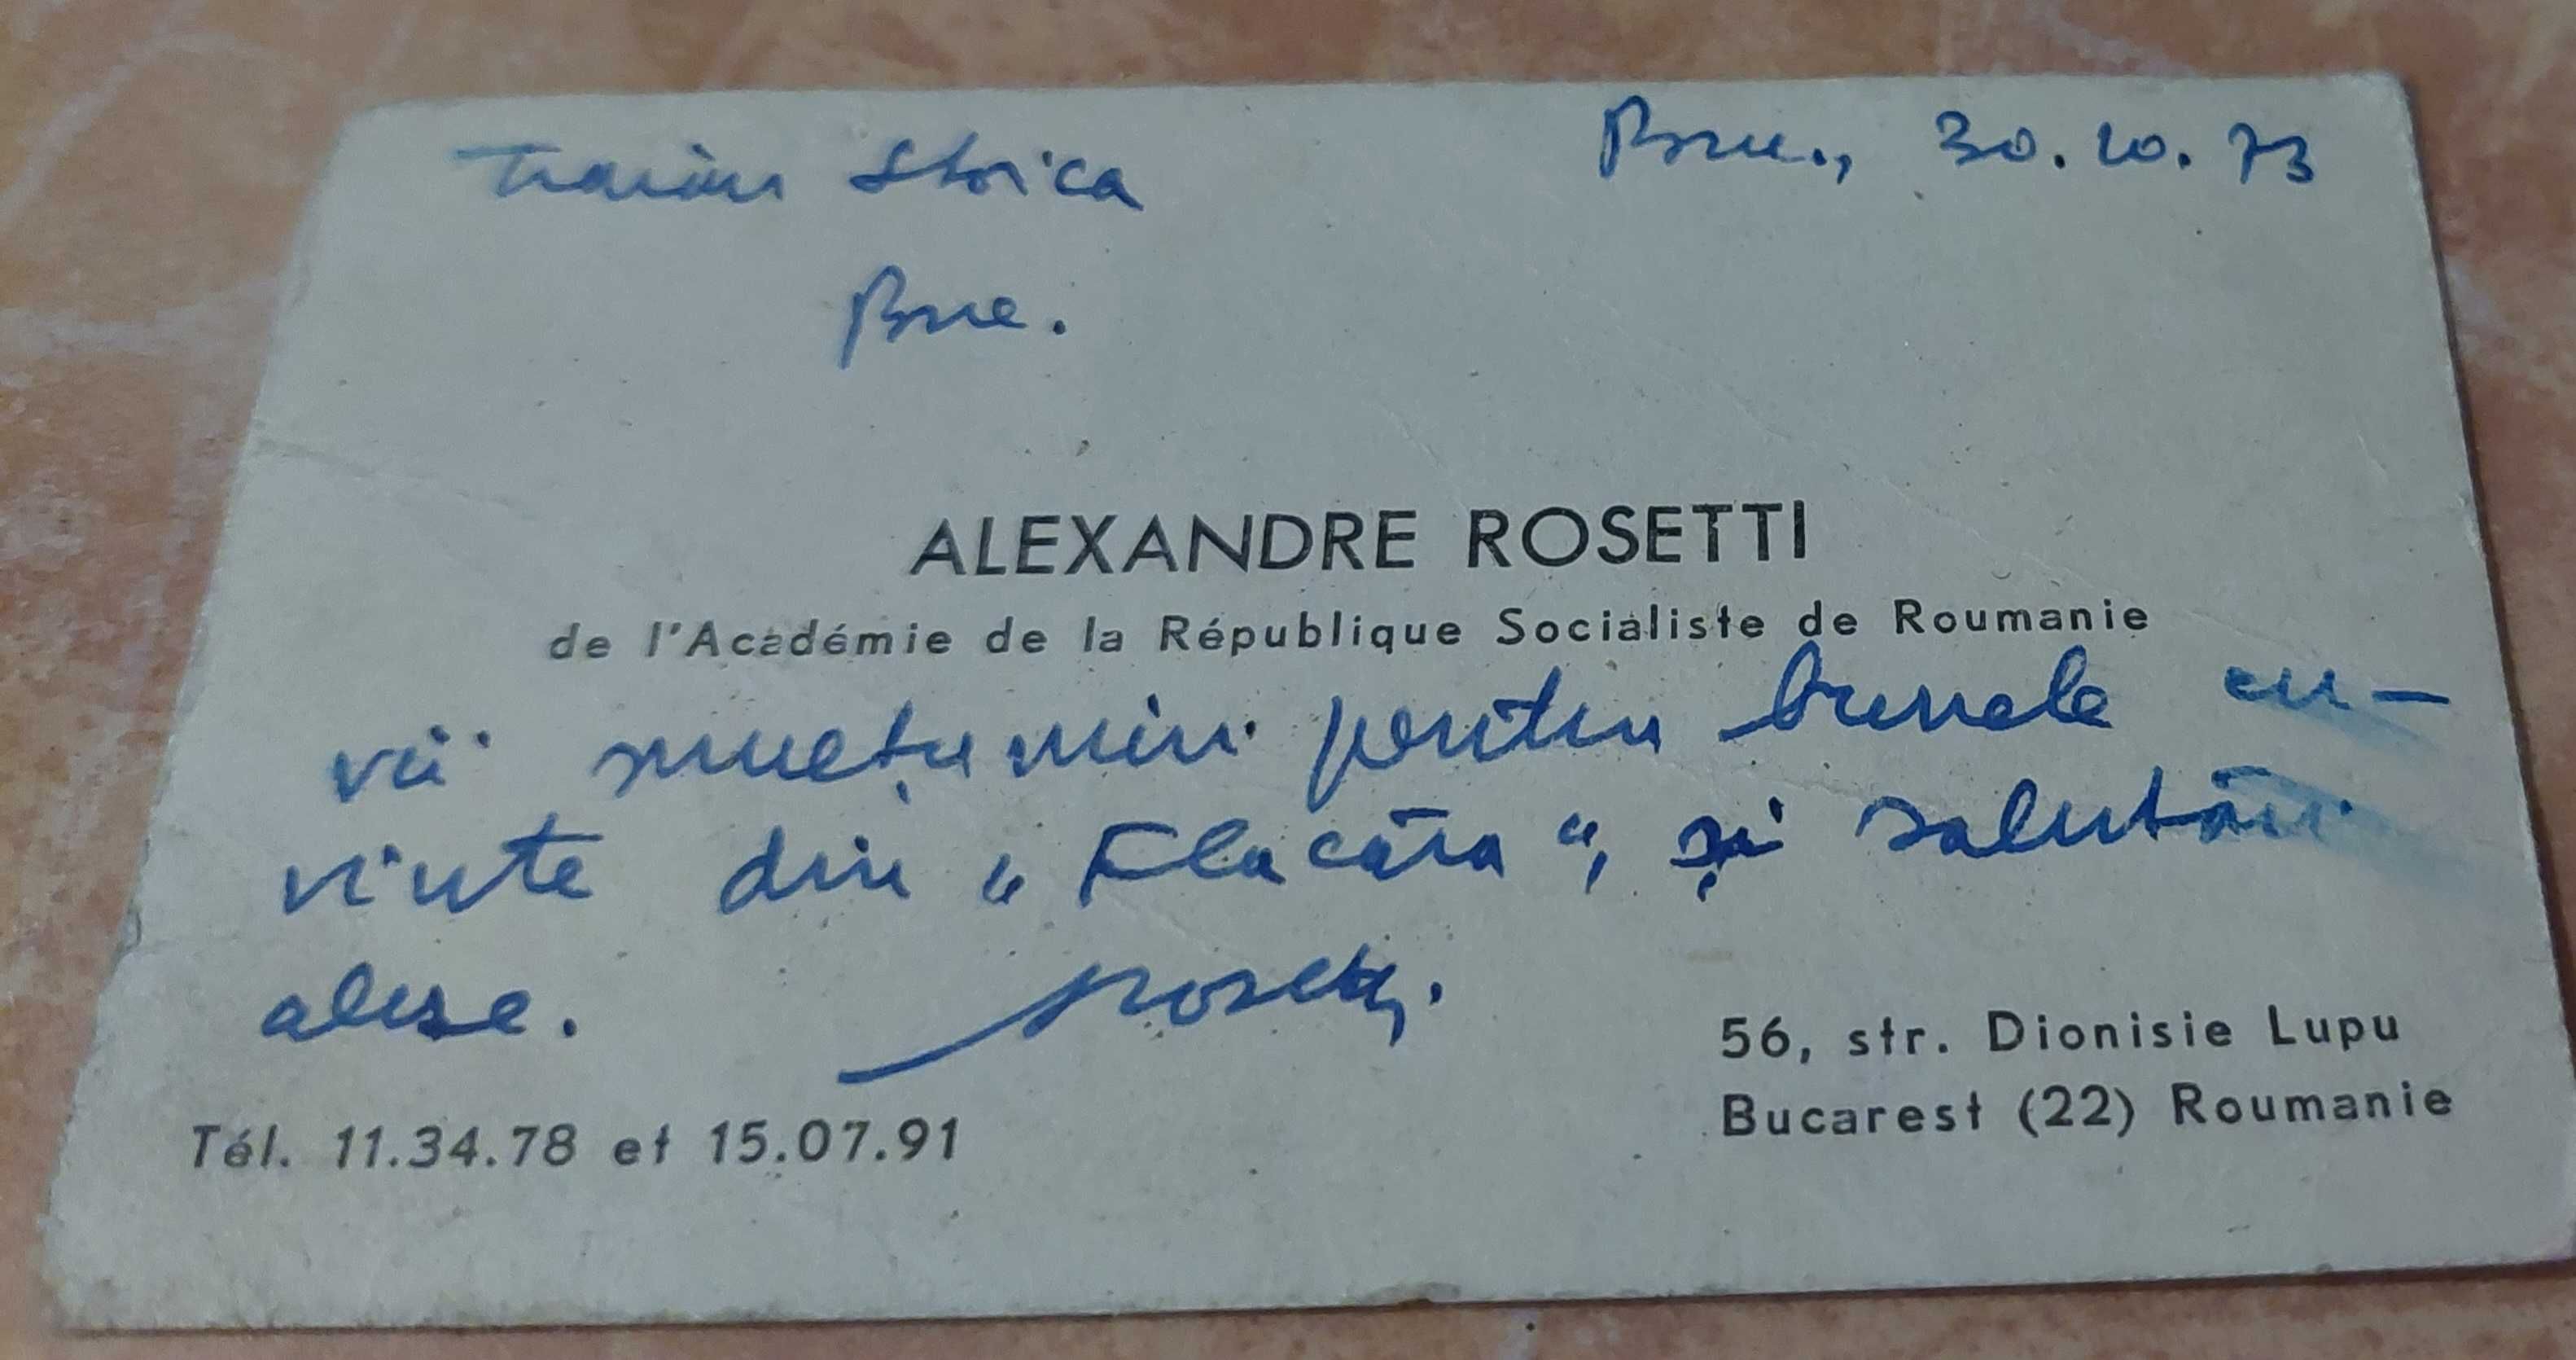 Traian Stoica
Buc., 30.10.73
Buc.
ALEXANDRE ROSETTI
de l'Académie de la République Socialiste de Roumanie
vii mulțumiri pentru bunele cu-
vinte din „Flacăra“, și salutări
alese. Rosetti.
56, str. Dionisie Lupu
Bucarest (22) Roumanie
Tél. 11.34.78 et 15.07.91